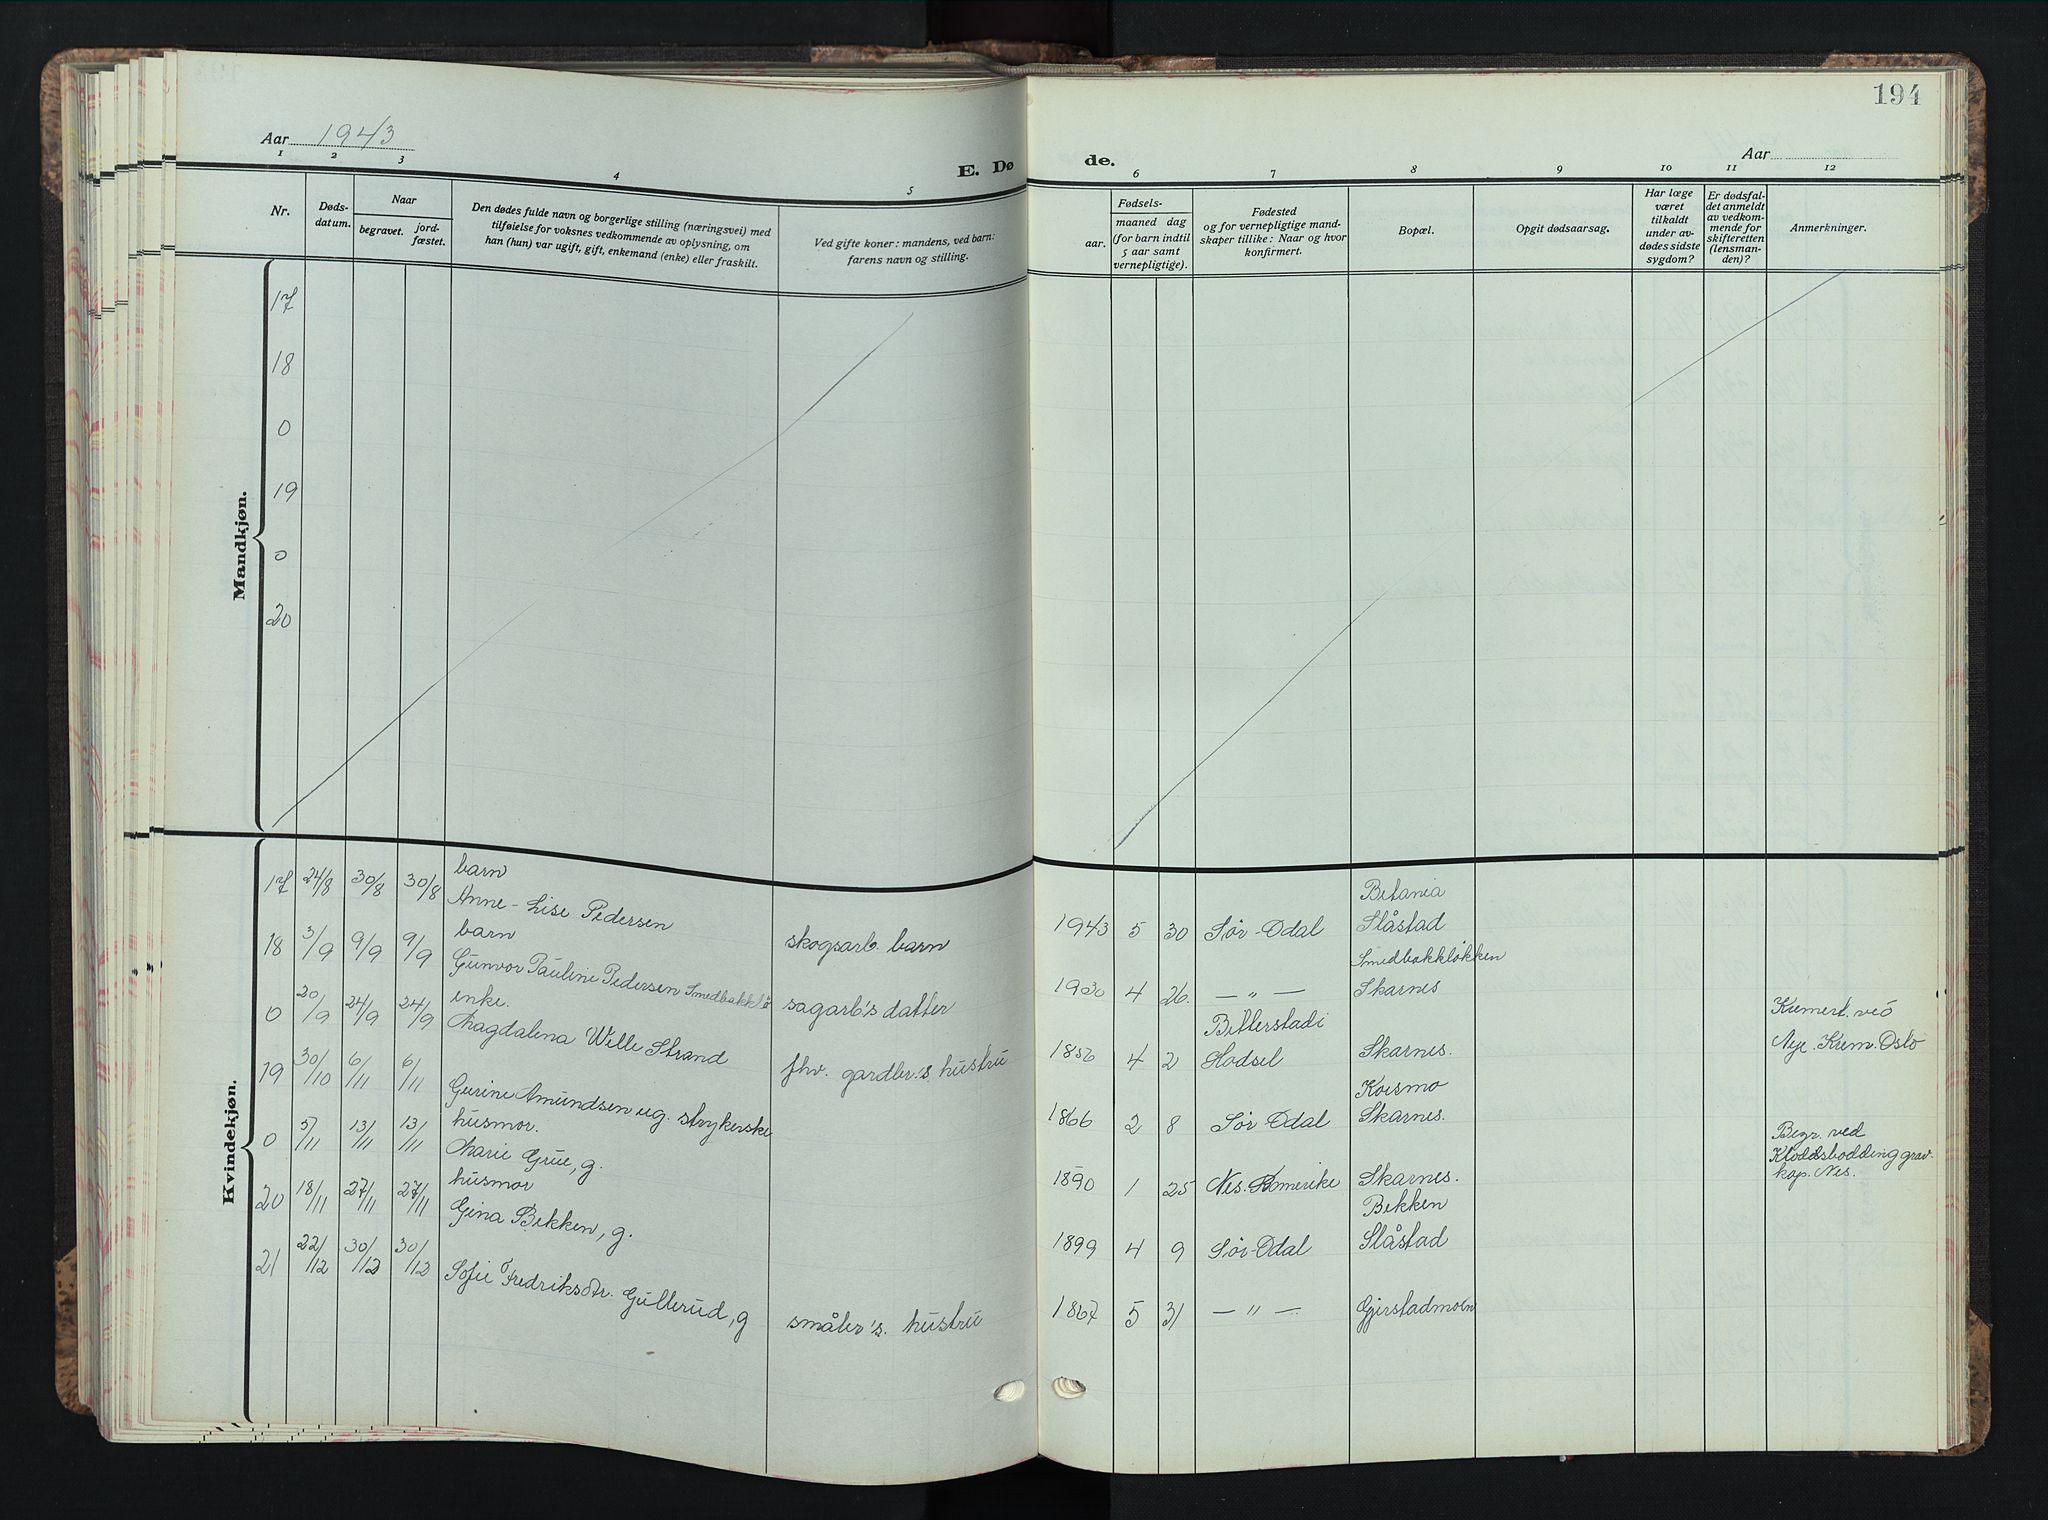 194
Aar 1943
E. Dø
de.
Aar
1 2 3 4 5 6 7 8 9 10 11 12
Nr.
Døds-
datum.
Naar
begravet.
jord-
fæstet.
Den dødes fulde navn og borgerlige stilling (næringsvei) med
tilføielse for voksnes vedkommende av oplysning, om
han (hun) var ugift, gift, enkemand (enke) eller fraskilt.
Ved gifte koner: mandens, ved barn:
farens navn og stilling.
Fødsels-
aar.
maaned dag
(for barn indtil
5 aar samt
vernepligtige).
Fødested
og for vernepligtige mand-
skaper tillike: Naar og hvor
konfirmert.
Bopæl.
Opgit dødsaarsag.
Har læge
været
tilkaldt
under av-
dødes sidste
sygdom?
Er dødsfal-
det anmeldt
av vedkom-
mende for
skifteretten
(lensman-
den)?
Anmerkninger.
Mandkjøn.
17
18
0
19
0
20
Kvindekjøn.
barn
Betania
17 24/8 30/8 30/8 Anne-Lise Pedersen skogsarb. barn 1943 5 30 Sør-Odal Slåstad
barn
Smedbakkløkken
18 3/9 9/9 9/9 Gunvor Pauline Pedersen Smedbakkl. sagarb's datter 1930 4 26. — " — Skarnes
enke.
Bitterstadi
Kremert. ved
0 20/9 24/9 24/9 Magdalena Wille Strand fhv. gardbr.s hustru 1856 4 2 Hadsel Skarnes. Nye. Krem. Oslo
Koismo
19 30/10 6/11 6/11 Gurine Amundsen ug. strykerske 1866 2 8 Sør Odal Skarnes.
husmor.
Begr. ved
Kloddsbodding grav-
0 5/11 13/11 13/11 Marie Grue, g. 1890 1 25 Nes. Romerike Skarnes. kap. Nes.
husmor
Bekken
20 18/11 27/11 27/11 Gina Bekken, g. 1899 4 9 Sør-Odal Slåstad
21 22/12 30/12 30/12 Sofie Fredriksdtr. Gullerud, g småbr's. hustru 1867 5 31 — " — Gjerstadmoen